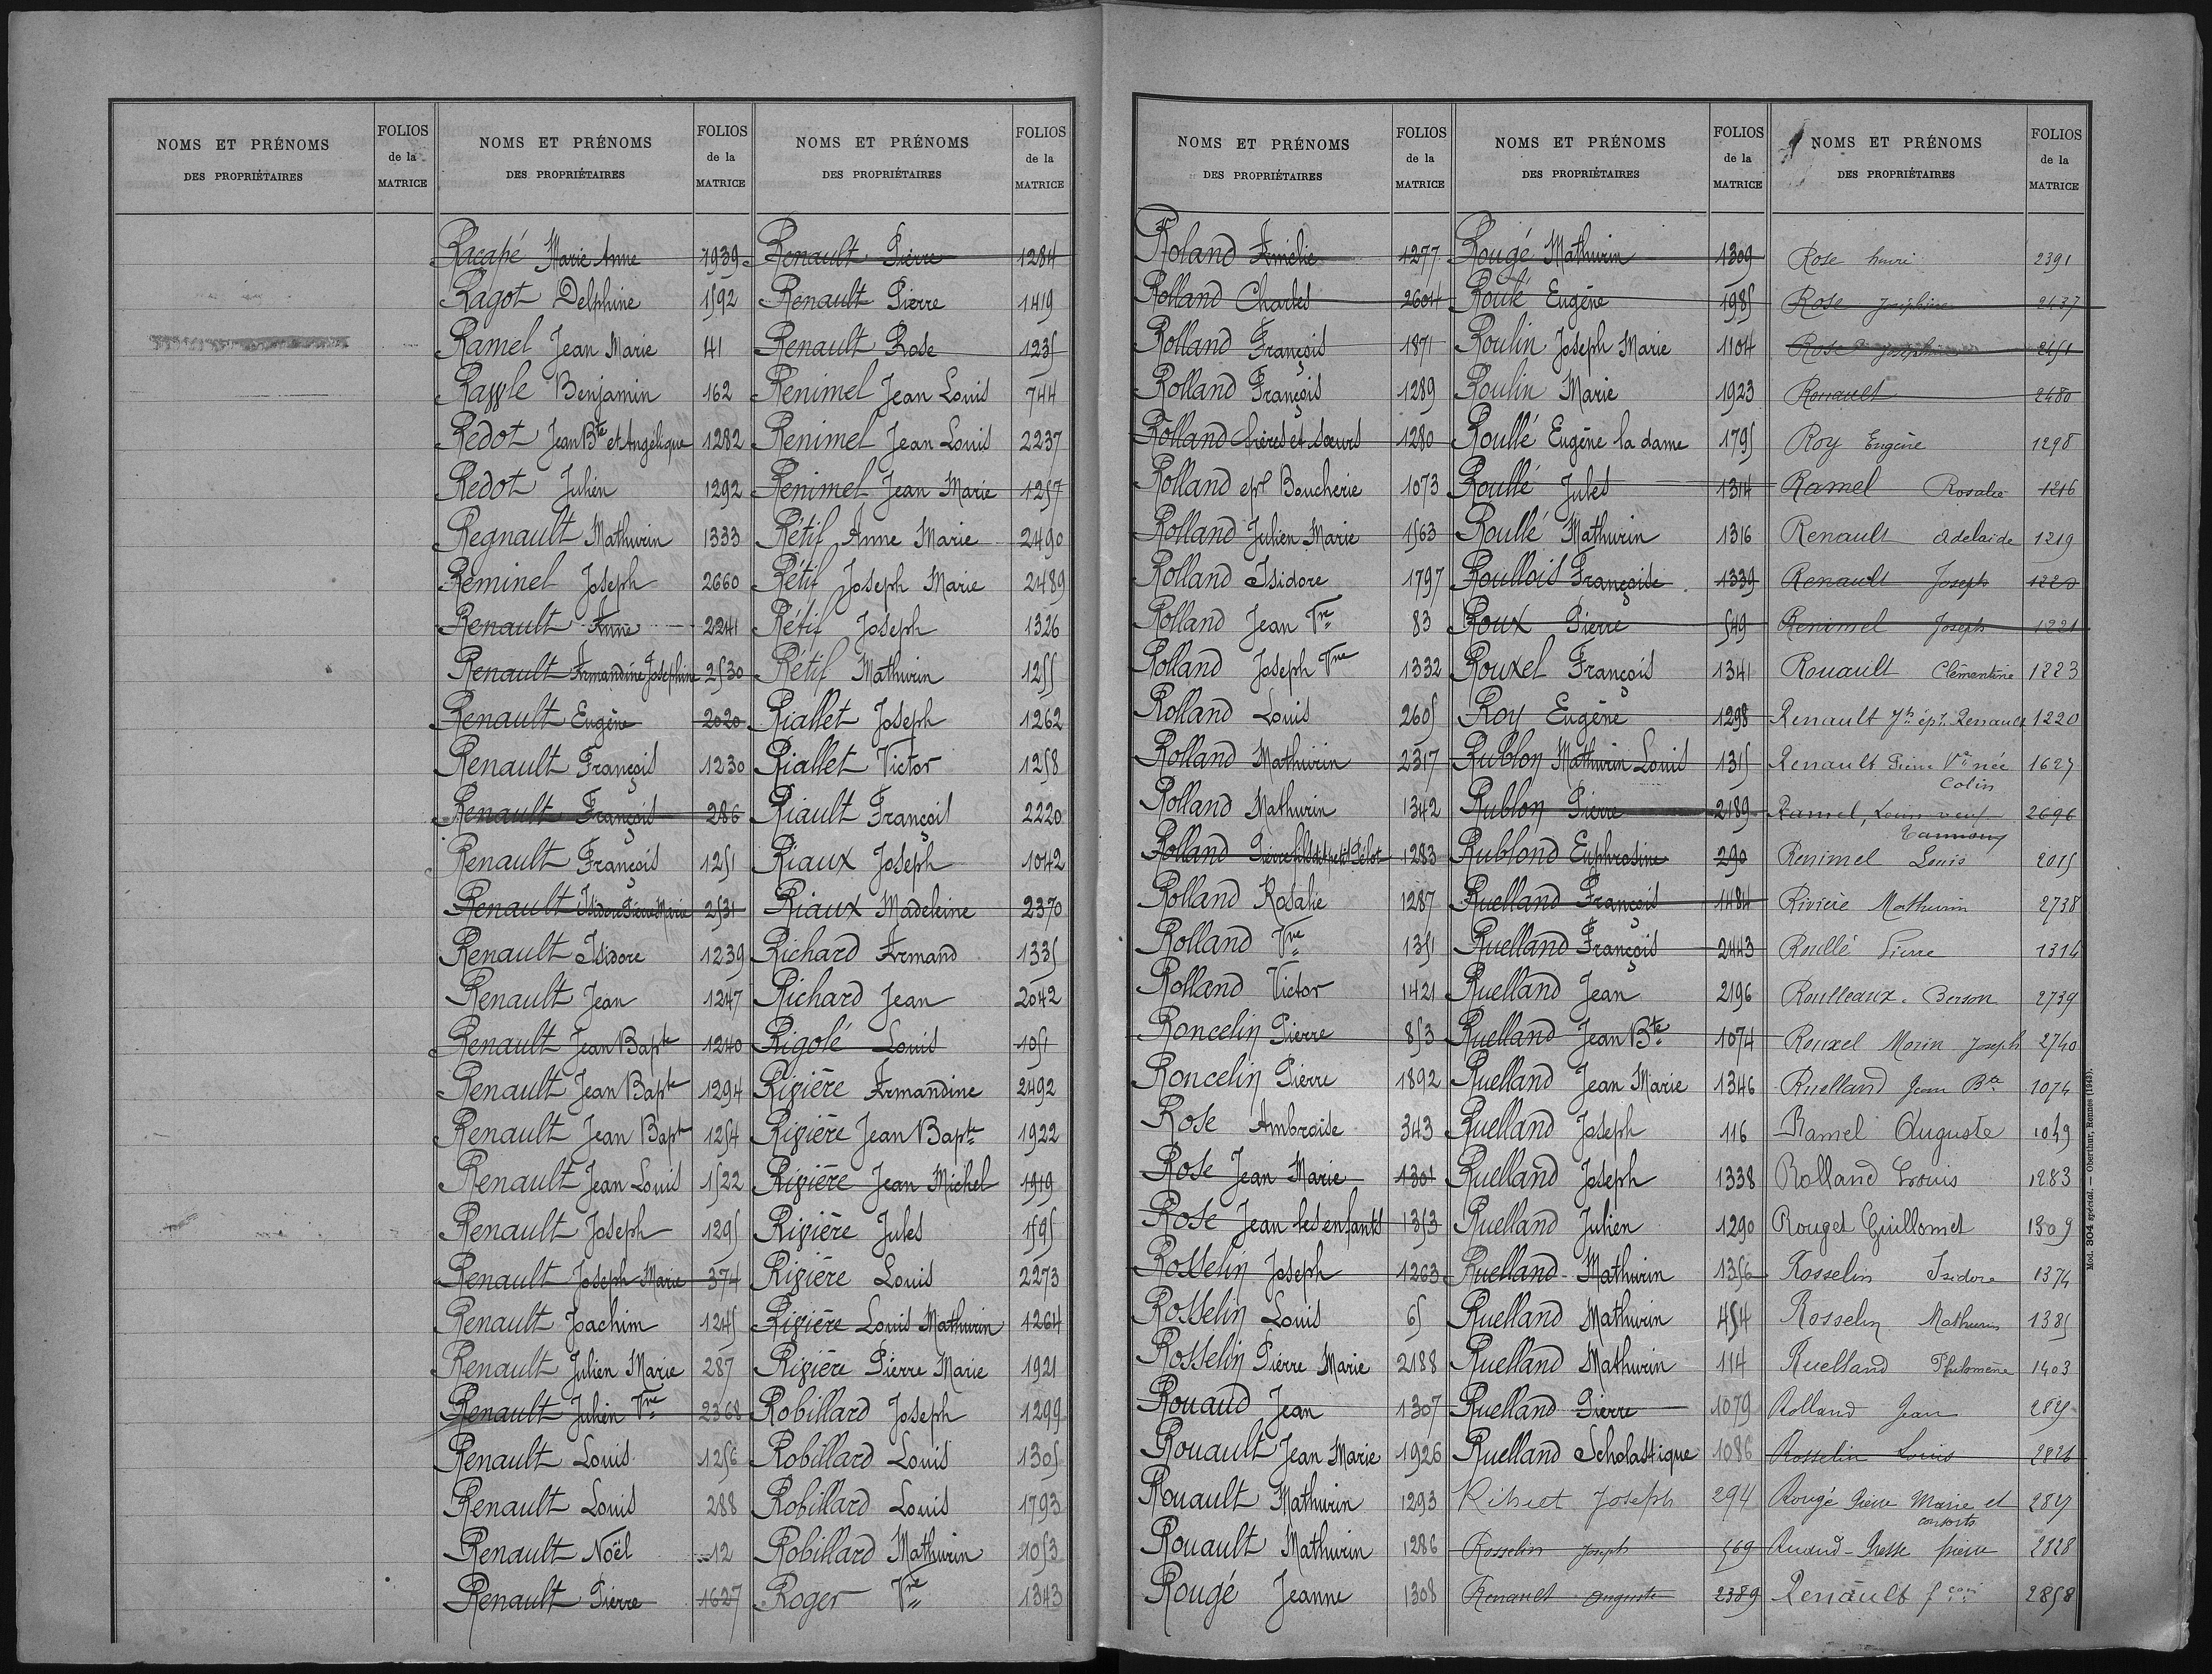 NOMS ET PRÉNOMS DES PROPRIÉTAIRES
FOLIOS de la MATRICE
NOMS ET PRÉNOMS DES PROPRIÉTAIRES
FOLIOS de la MATRICE
NOMS ET PRÉNOMS DES PROPRIÉTAIRES
FOLIOS de la MATRICE
Racapé Marie Anne 1939
Ragot Delphine 1592
Ramel Jean Marie 141
Rassle Benjamin 162
Redot Jean Bte et Angélique 1282
Redot Julien 1292
Regnault Mathurin 1333
Reminel Joseph 2660
Renault Anne 2241
Renault Armandine Josephine 2530
Renault Eugène 2020
Renault François 1230
Renault François 286
Renault François 1251
Renault Isidore Pierre Marie 2531
Renault Isidore 1239
Renault Jean 1247
Renault Jean Bapte 1240
Renault Jean Bapte 1294
Renault Jean Bapte 1254
Renault Jean Louis 1522
Renault Joseph 1295
Renault Joseph Marie 374
Renault Joachim 1245
Renault Julien Marie 287
Renault Julien Vve 2368
Renault Louis 1256
Renault Louis 288
Renault Noël 12
Renault Pierre 1627
Renault Pierre 1284
Renault Pierre 1419
Renault Rose 1235
Renimel Jean Louis 744
Renimel Jean Louis 2237
Renimel Jean Marie 1257
Rétif Anne Marie 2490
Rétif Joseph Marie 2489
Rétif Joseph 1326
Rétif Mathurin 1255
Riallet Joseph 1262
Riallet Victor 1258
Riault François 2220
Riaux Joseph 1042
Riaux Madeleine 2370
Richard Armand 1335
Richard Jean 2042
Rigolé Louis 1051
Rivière Armandine 2492
Rivière Jean Bapte 1922
Rivière Jean Michel 1919
Rivière Jules 1595
Rivière Louis 2273
Rivière Louis Mathurin 1264
Rivière Pierre Marie 1921
Robillard Joseph 1299
Robillard Louis 1305
Robillard Louis 1793
Robillard Mathurin 1053
Roger Vve 1343
NOMS ET PRÉNOMS DES PROPRIÉTAIRES
FOLIOS de la MATRICE
NOMS ET PRÉNOMS DES PROPRIÉTAIRES
FOLIOS de la MATRICE
NOMS ET PRÉNOMS DES PROPRIÉTAIRES
FOLIOS de la MATRICE
Roland Amélie 1277
Rolland Charles 2604
Rolland François 1871
Rolland François 1289
Rolland frères et sœurs 1280
Rolland epse Boucherie 1073
Rolland Julien Marie 1563
Rolland Isidore 1797
Rolland Jean Vve 83
Rolland Joseph Vve 1332
Rolland Louis 2605
Rolland Mathurin 2317
Rolland Mathurin 1342
Rolland Pierre fils 1283
Rolland Rosalie 1287
Rolland Vve 1351
Rolland Victor 1421
Roncelin Pierre 853
Roncelin Pierre 1892
Rose Ambroise 343
Rose Jean Marie 1301
Rose Jean les enfants 1353
Rosselin Joseph 1263
Rosselin Louis 65
Rosselin Pierre Marie 2188
Rouaud Jean 1307
Rouault Jean Marie 1926
Rouault Mathurin 1293
Rouault Mathurin 1286
Rougé Jeanne 1308
Rougé Mathurin 1309
Roulé Eugène 1985
Roulin Joseph Marie 1104
Roulin Marie 1923
Roullé Eugène la dame 1795
Roullé Jules 1314
Roullé Mathurin 1316
Roullois Françoise 1339
Roux Pierre 549
Rouxel François 1341
Roy Eugène 1298
Rublon Mathurin Louis 1315
Rublon Pierre 2189
Rublond Euphrosine 290
Ruelland François 1484
Ruelland François 2443
Ruelland Jean 2196
Ruelland Jean Bte 1074
Ruelland Jean Marie 1346
Ruelland Joseph 116
Ruelland Joseph 1338
Ruelland Julien 1290
Ruelland Mathurin 1356
Ruelland Mathurin 454
Ruelland Mathurin 114
Ruelland Pierre 1079
Ruelland Scholastique 1086
Ribiet Joseph 294
Rosselin Joseph 569
Renault Auguste 2389
Rose henri 2391
Rose Joséphine 2437
Rose 2451
Rouault 2480
Roy Eugène 1298
Ramel Rosalie 1216
Renault Adelaide 1219
Renault Joseph 1220
Renimel Joseph 1221
Rouault Clémentine 1223
Renault Jh épx. Renault 1220
Renault Pierre Ve née Colin 1627
Ramel, Louis veuf 2696
Renimel Louis 2015
Rivière Mathurin 2738
Roullé Pierre 1314
Roulleaux-Berson 2739
Rouxel Morin Joseph 2740
Ruelland Jean Bte 1074
Ramel Auguste 1049
Rolland Louis 1283
Rouget Guillomet 1309
Rosselin Isidore 1374
Rosselin Mathurin 1385
Ruelland Philomène 1403
Rolland Jean
Rosselin Louis 2826
Rougé Pierre Marie et consorts
Ruaud-Gresse 2828
Renault 2858
Mod. 304 spécial. — Oberthur, Rennes (1943).